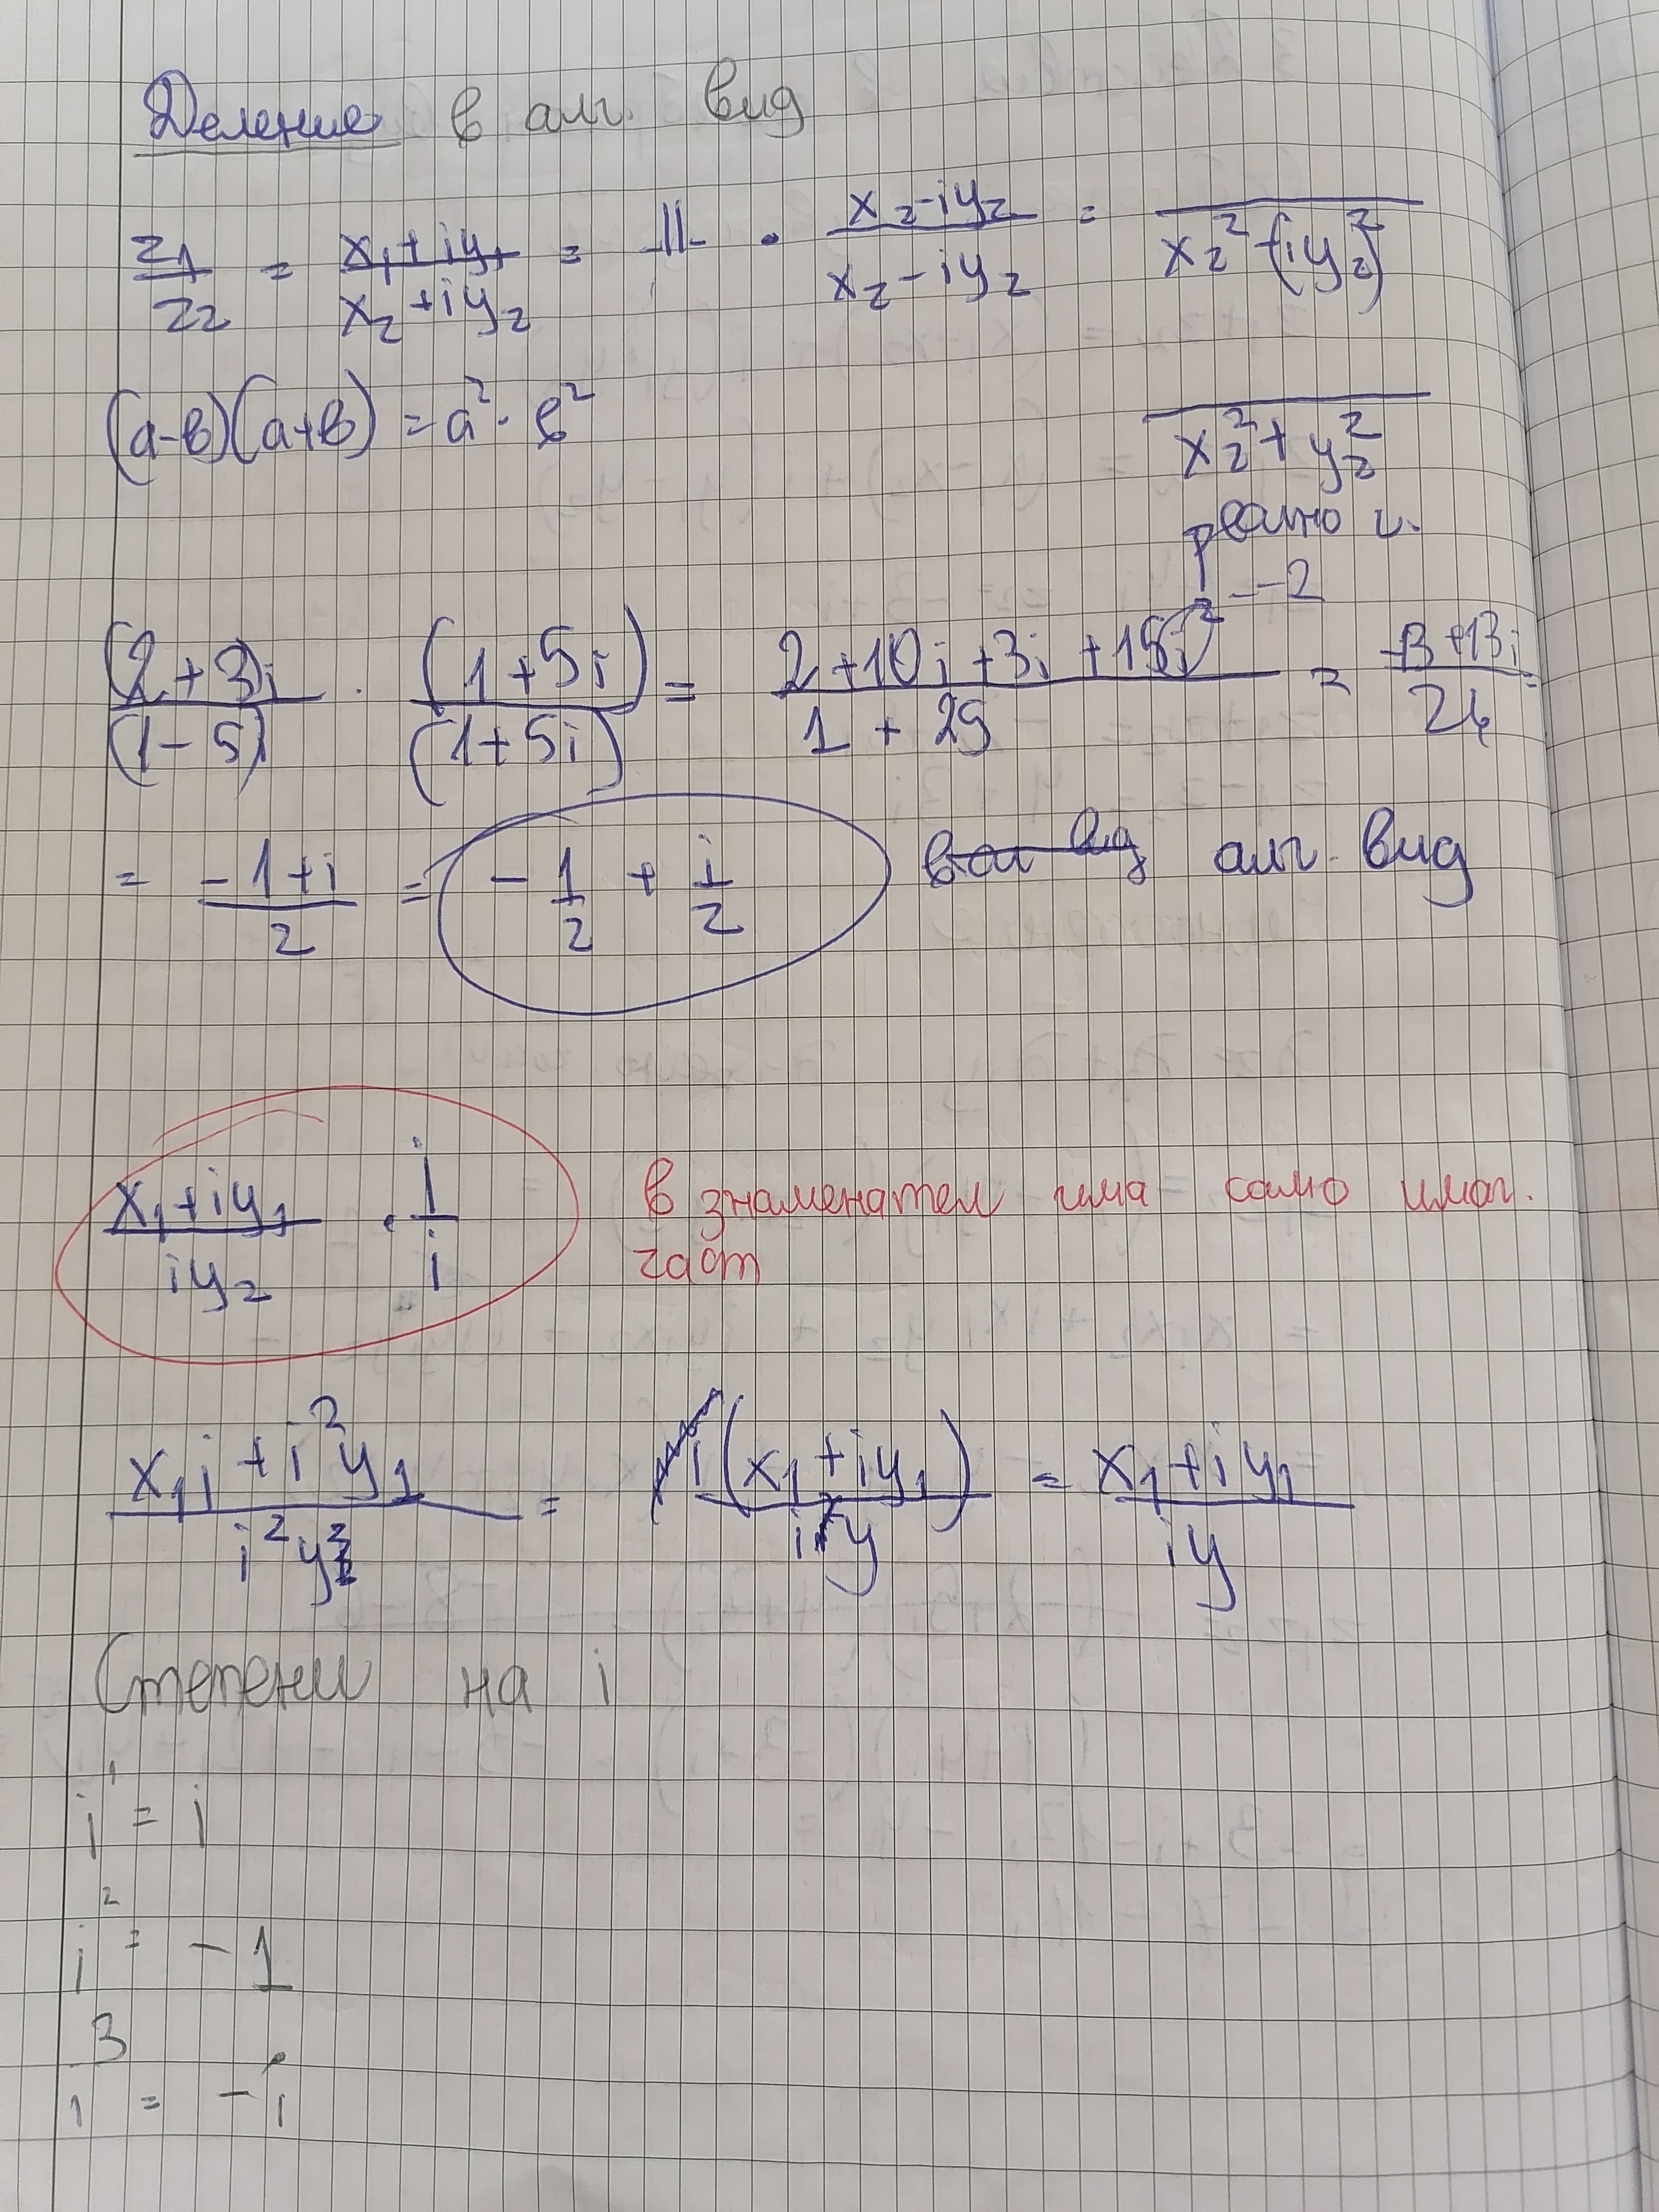 Деление в алг. вид
z1/z2 = (x1+iy1)/(x2+iy2) = -||- · (x2-iy2)/(x2-iy2) = /(x2² -(iy2²))
(a-в)(a+в) = a² - в²
/(x2²+y2²)
равно
(2+3)i/(1-5)i · (1+5i)/(1+5i) = (2+10i+3i+15i²)/(1+25) = (-13+13i)/26 =
= (-1+i)/2 = -1/2 + i/2 алг. вид
(x1+iy1)/(iy2) · i/i в знаменател има само имаг.
част
(x1i+i²y1)/(i²y2) = i(x1+iy1)/(i²y) = (x1+iy1)/(iy)
Степени на i
i¹ = i
i² = -1
i³ = -i